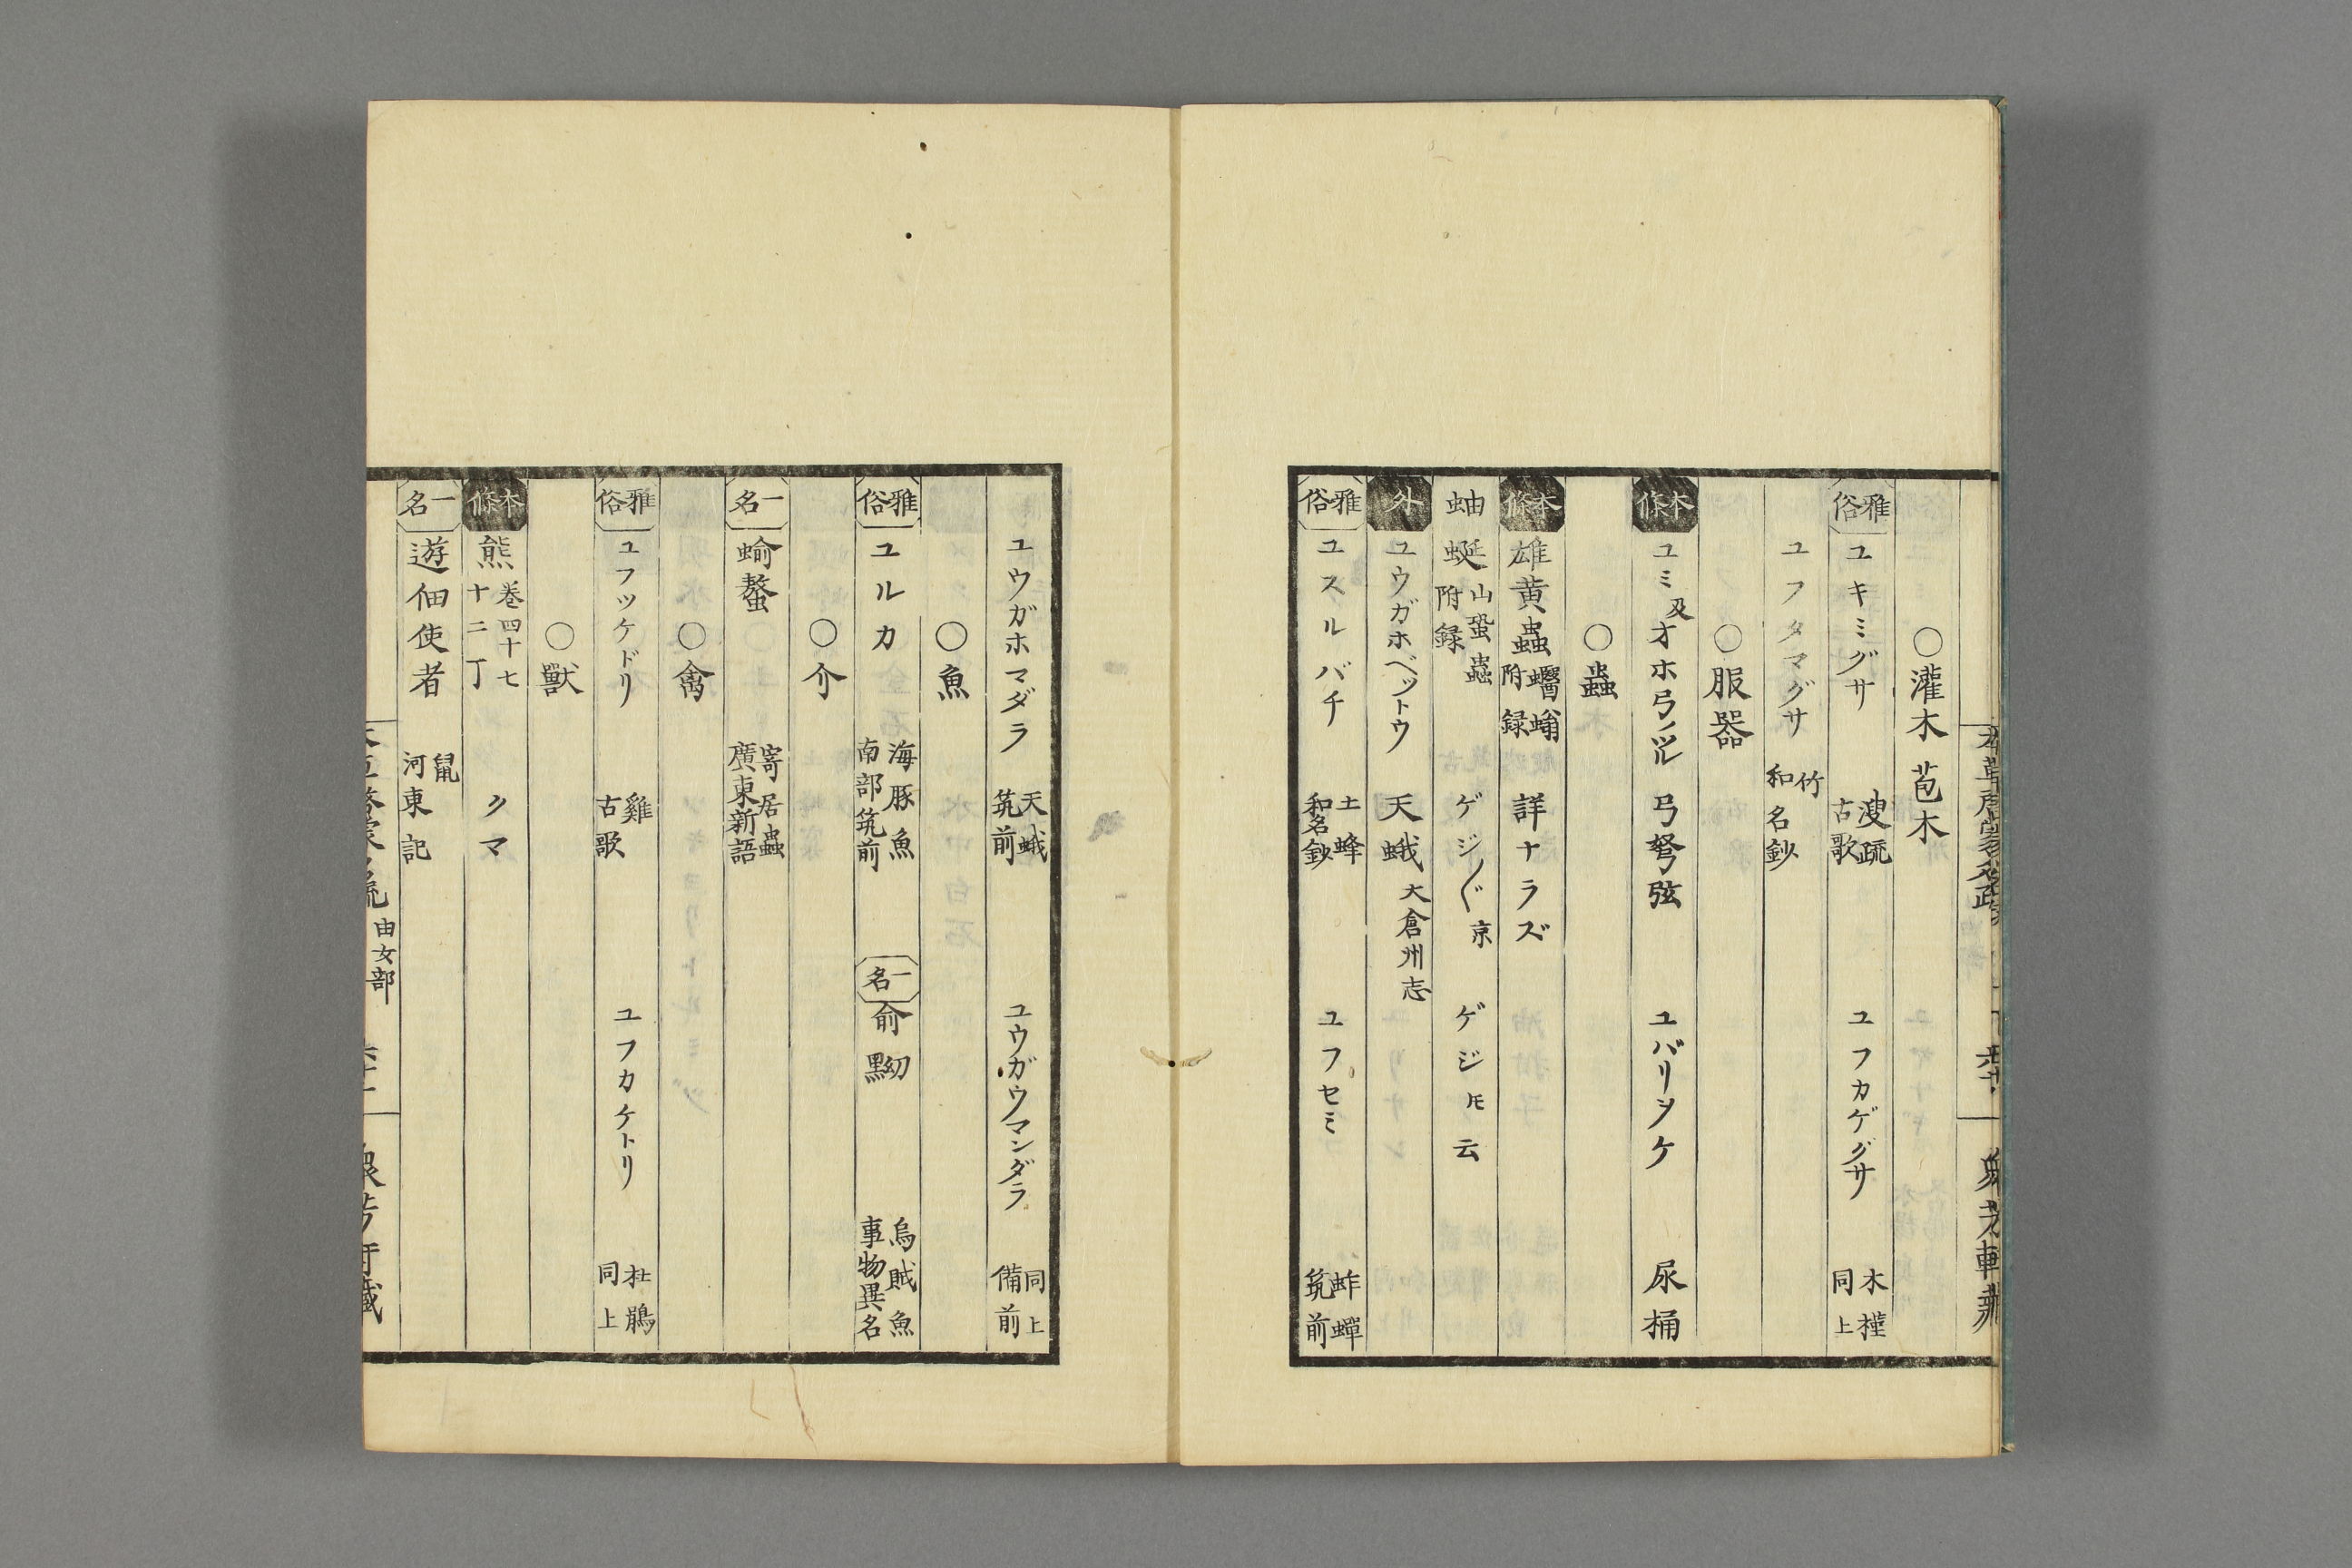 ○灌木 苞木
雅俗 ユキミグサ 溲疏 古歌 ユフカゲグサ 木槿 同上
ユフタマグサ 竹 和名鈔
○服器
本條 ユミ及オホ弓ノツル 弓弩弦 ユバリヲケ 尿桶
○蟲
本條 雄黄蟲 蠮螉附録 詳ナラズ
蚰蜒 山蛩蟲附録 ゲジ〱 京 ゲジトモ云
外 ユウガホベツトウ 天蛾 大倉州志
雅俗 ユスルバチ 土蜂 和名鈔 ユフセミ 蚱蟬 筑前
ユウガホマダラ 天蛾 筑前 ユウガウマンダラ 同上 備前
○魚
雅俗 ユルカ 海豚魚 南部筑前 一名 俞 烏賊魚 事物異名
○介
一名 蝓螯 寄居蟲 廣東新語
○禽
雅俗 ユフツケドリ 雞 古歌 ユフカケトリ 杜鵑 同上
○獸
本條 熊 巻四十七 十二丁 クマ
一名 遊佃使者 鼠 河東記
由女部